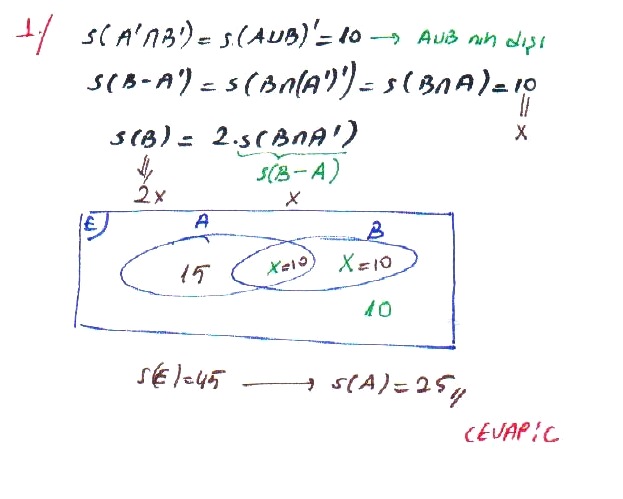 1-/ s(A'∩B') = s(A∪B)' = 10 → A∪B nin dışı
s(B-A') = s(B∩(A')') = s(B∩A) = 10
s(B) = 2.s(B∩A') x
s(B-A)
2x x
E A B
15 x=10 x=10
10
s(E)=45 → s(A)=25//
CEVAP:C